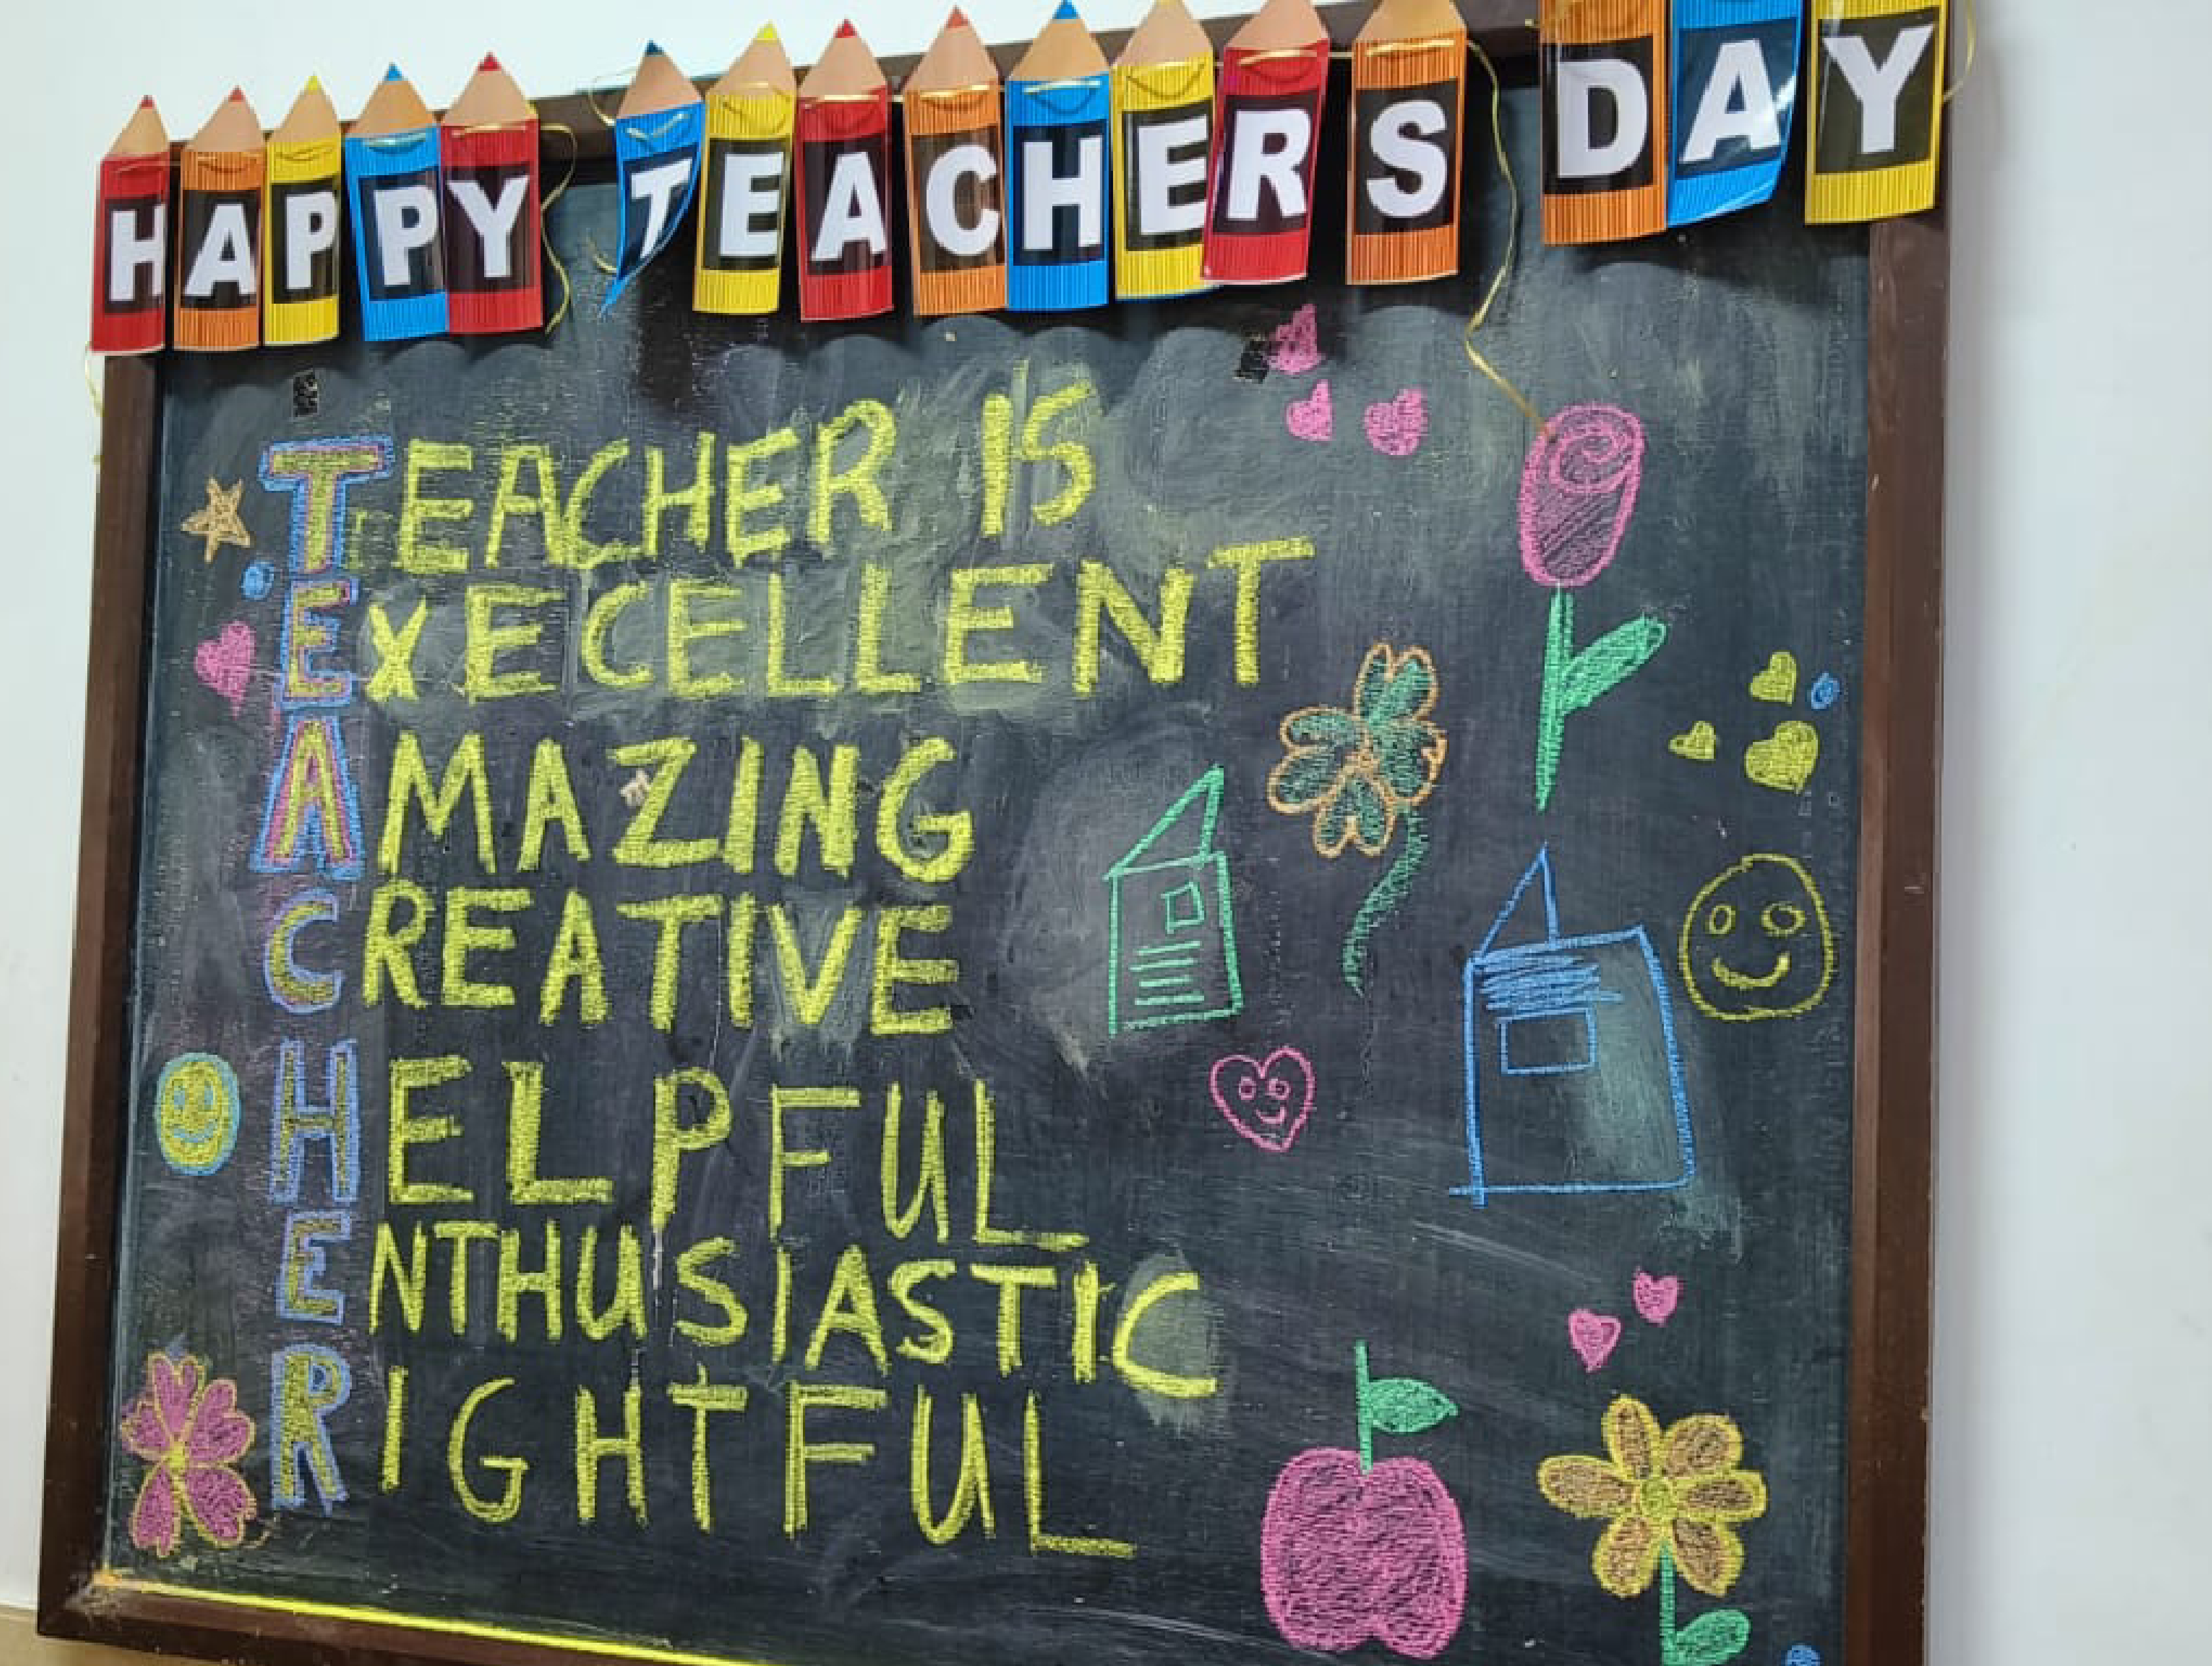 HAPPY TEACHERS DAY
TEACHER IS
EXECELLENT
AMAZING
CREATIVE
HELPFUL
ENTHUSIASTIC
RIGHTFUL